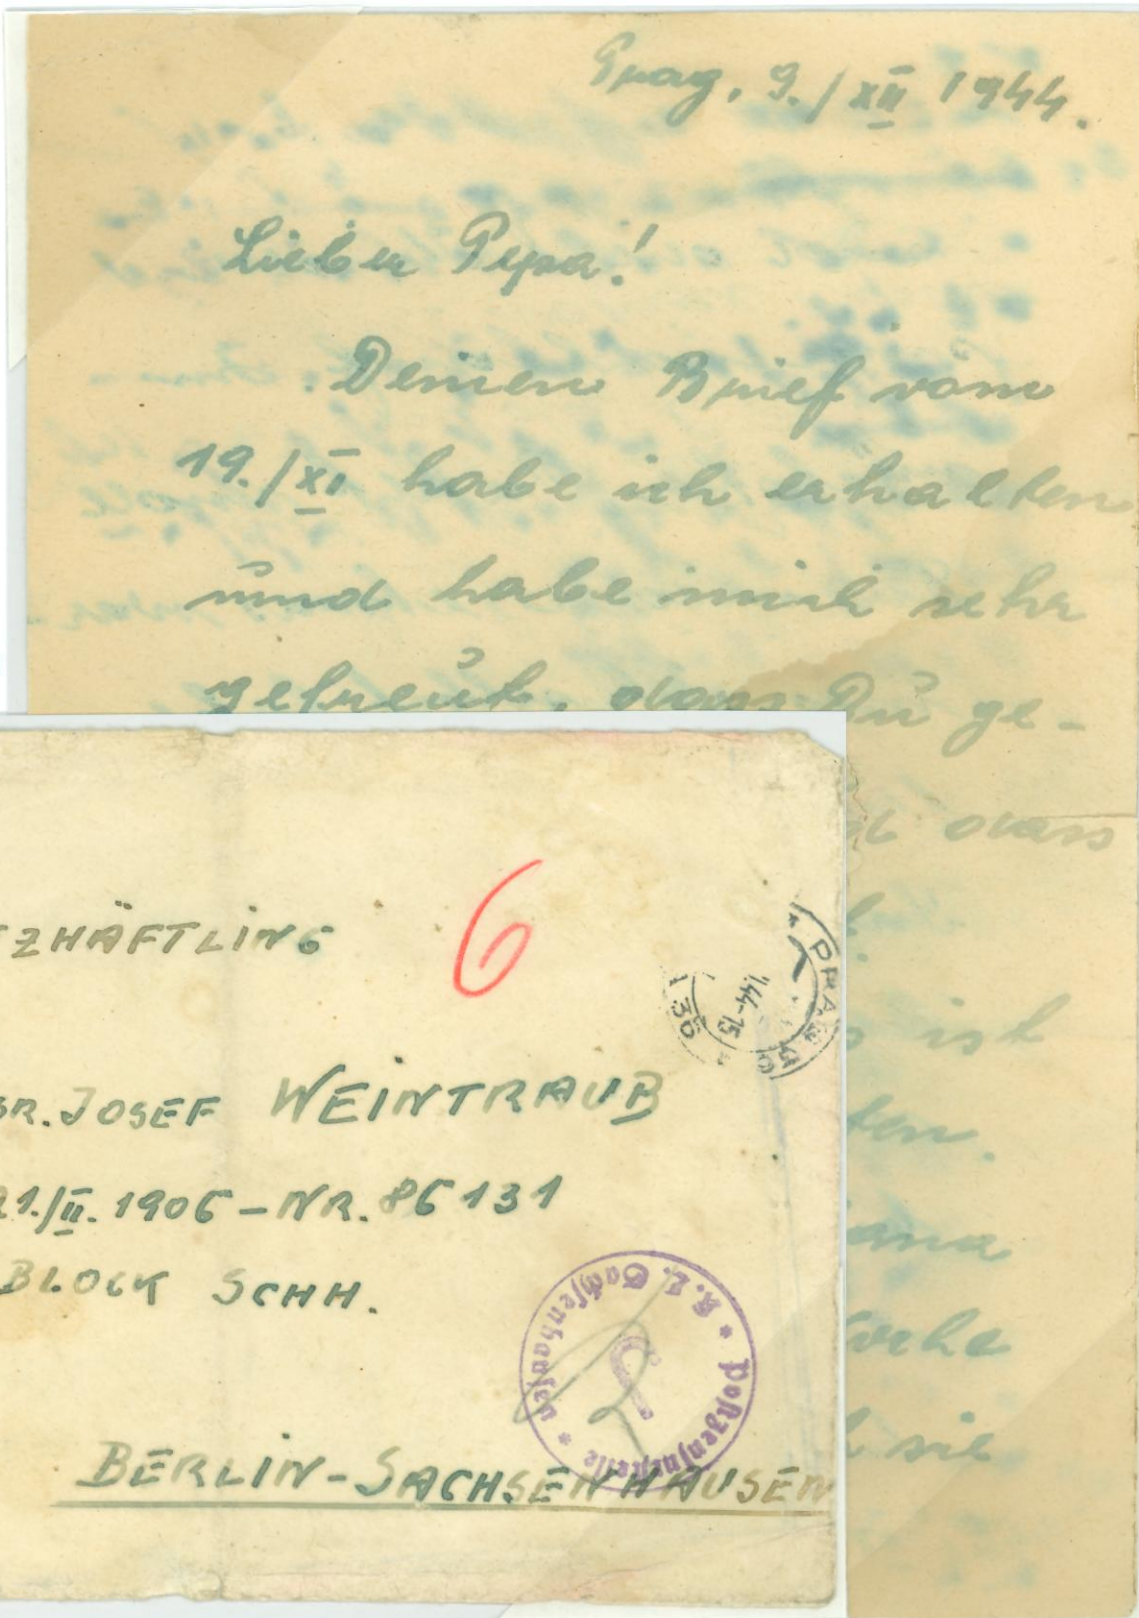 Prag, 9./XII 1944.
Lieber Pepa!
Deinen Brief vom
19./XI habe ich erhalten
und habe mich sehr
gefreut, dass Du ge-
dass
ist
sie
ZHÄFTLING
6
DR. JOSEF WEINTRAUB
21./II. 1906 – NR. 86131
BLOCK SCHH.
PRAG
36
44-15
* Postzensurstelle * K.L. Sachsenhausen
BERLIN-SACHSENHAUSEN